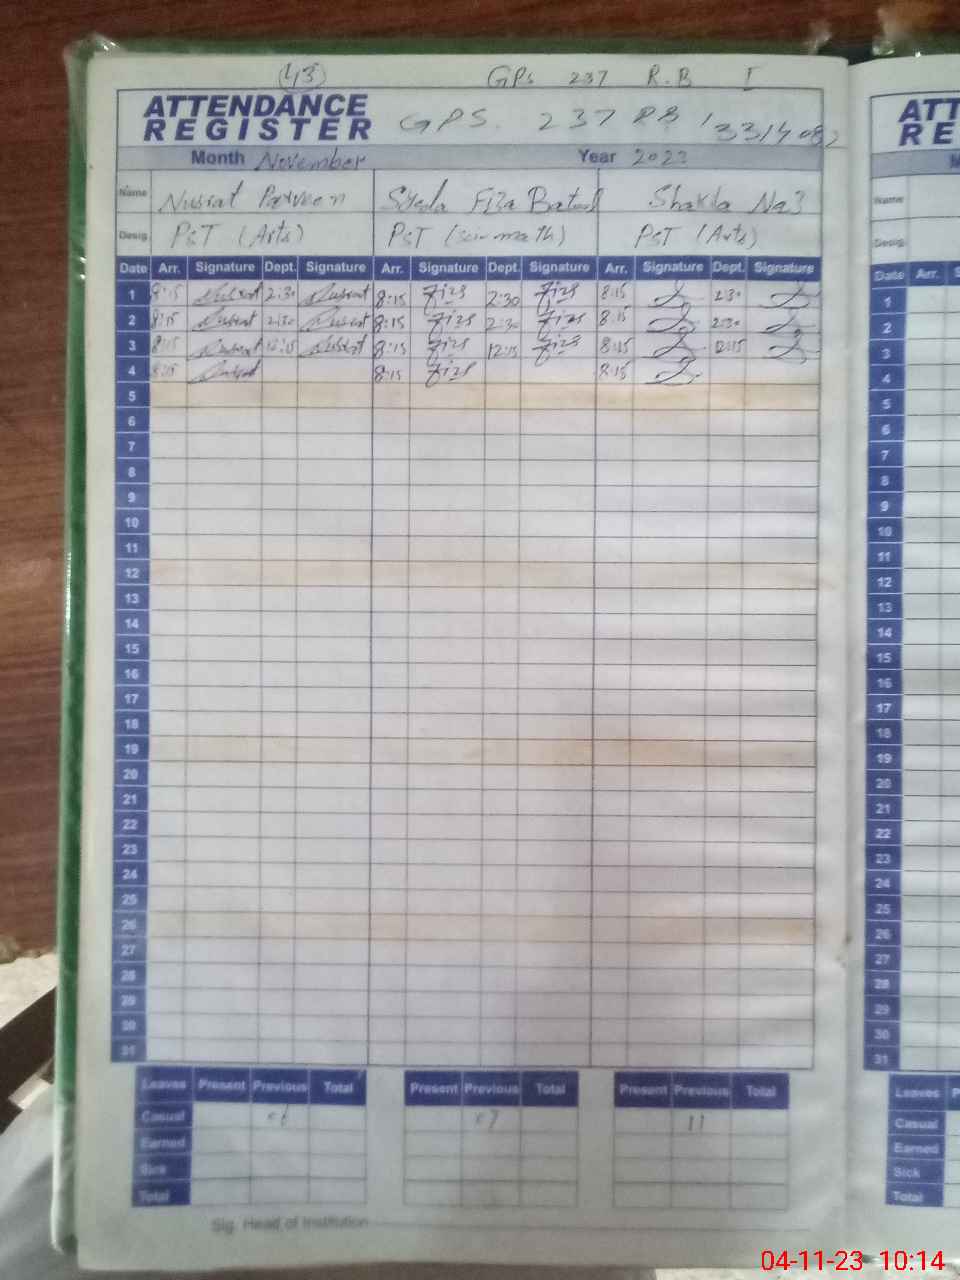 43 GPs 237 R.B I
ATTENDANCE
REGISTER
GPS. 237 RB
Month November Year 2023
Name Nusrat Parveen Syeda Fiza Batool Shakila Naz
Desig. PST (Arts) PST (sci-math) PST (Arts)
Date Arr. Signature Dept. Signature Arr. Signature Dept. Signature Arr. Signature Dept. Signature
1 8:15 Nusrat 2:30 Nusrat 8:15 Fiza 2:30 Fiza 8:15 2:30
2 8:15 Nusrat 2:30 Nusrat 8:15 Fiza 2:30 Fiza 8:15 2:30
3 8:15 Nusrat 12:15 Nusrat 8:15 Fiza 12:15 Fiza 8:15 12:15
4 8:15 Nusrat 8:15 Fiza 8:15
5
6
7
8
9
10
11
12
13
14
15
16
17
18
19
20
21
22
23
24
25
26
27
28
29
30
31
Leaves Present Previous Total Present Previous Total Present Previous Total
Casual 06 07 11
Earned
Sick
Total
Sig. Head of Institution
ATT
RE
M
Name
Desig.
Date Arr. Sig
1
2
3
4
5
6
7
8
9
10
11
12
13
14
15
16
17
18
19
20
21
22
23
24
25
26
27
28
29
30
31
Leaves P
Casual
Earned
Sick
Total
04-11-23 10:14